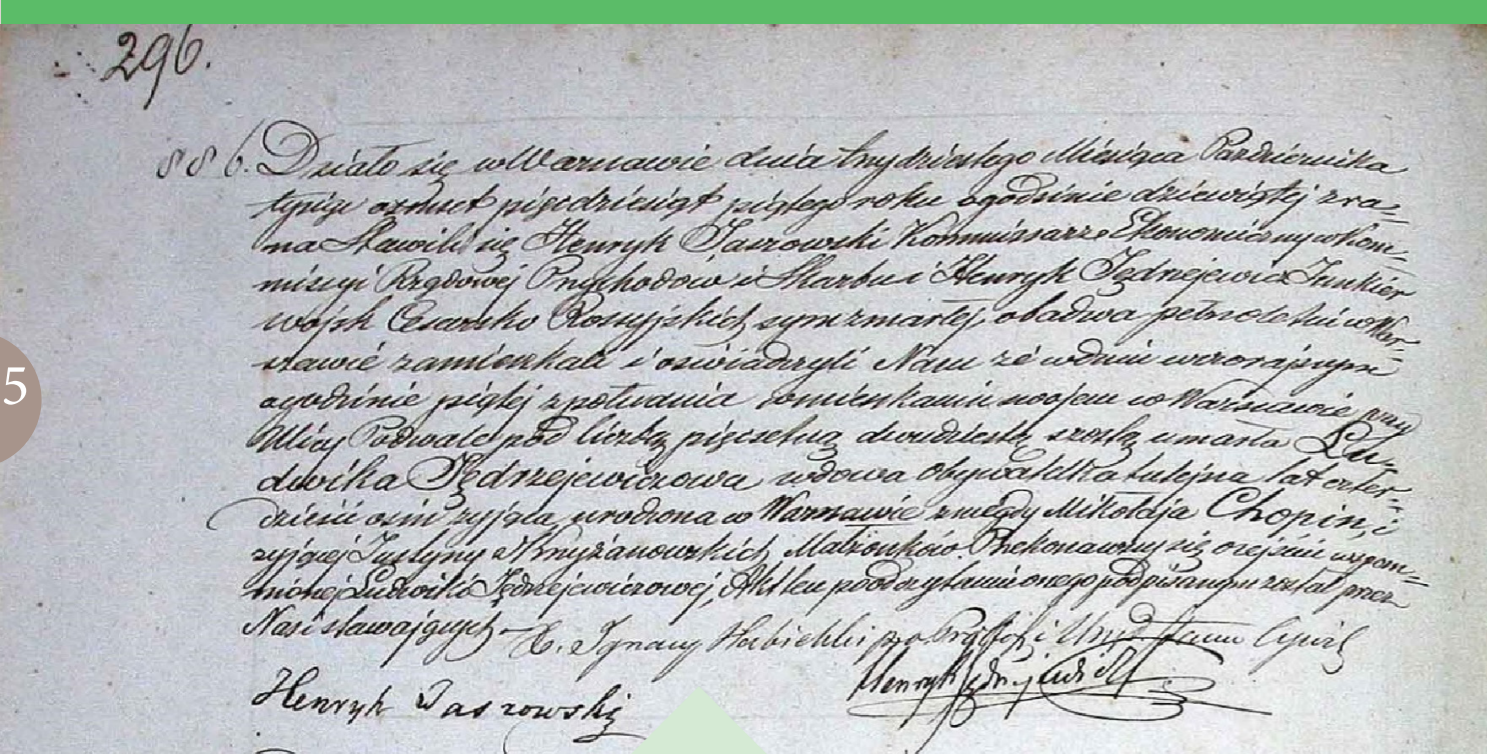 296.
886. Działo się w Warszawie dnia trzydziestego Miesiąca Października
tysiąc ośmset pięćdziesiąt piątego roku o godzinie dziewiątej z ra=
na Stawili się Henryk Jaszowski Kommissarz Ekonomiczny w Kom=
missyi Rządowej Przychodów i Skarbu i Henryk Jędrzejewicz Junkier
wojsk Cesarsko Rossyjskich syn zmarłej, obadwa pełnoletni w War=
szawie zamieszkali i oświadczyli Nam że w dniu wczorajszym
o godzinie piątej z południa w mieszkaniu swojem w Warszawie przy
Ulicy Podwale pod liczbą pięćsetną dwudziestą szóstą umarła Lu=
dwika Jędrzejewiczowa wdowa obywatelka tutejsza lat czter=
dzieści ośm żyjąca, urodzona w Warszawie z niegdy Mikołaja Chopin, i
żyjącej Justyny z Krzyżanowskich, Małżonków. Przekonawszy się o zejściu wspom=
nionej Ludwiki Jędrzejewiczowej, Akt ten po odczytaniu onego podpisanym został przez
Nas i stawających
X. Ignacy i Urzęd Stanu Cywil
Henryk Jaszowski
Henryk Jędrzejewicz
5